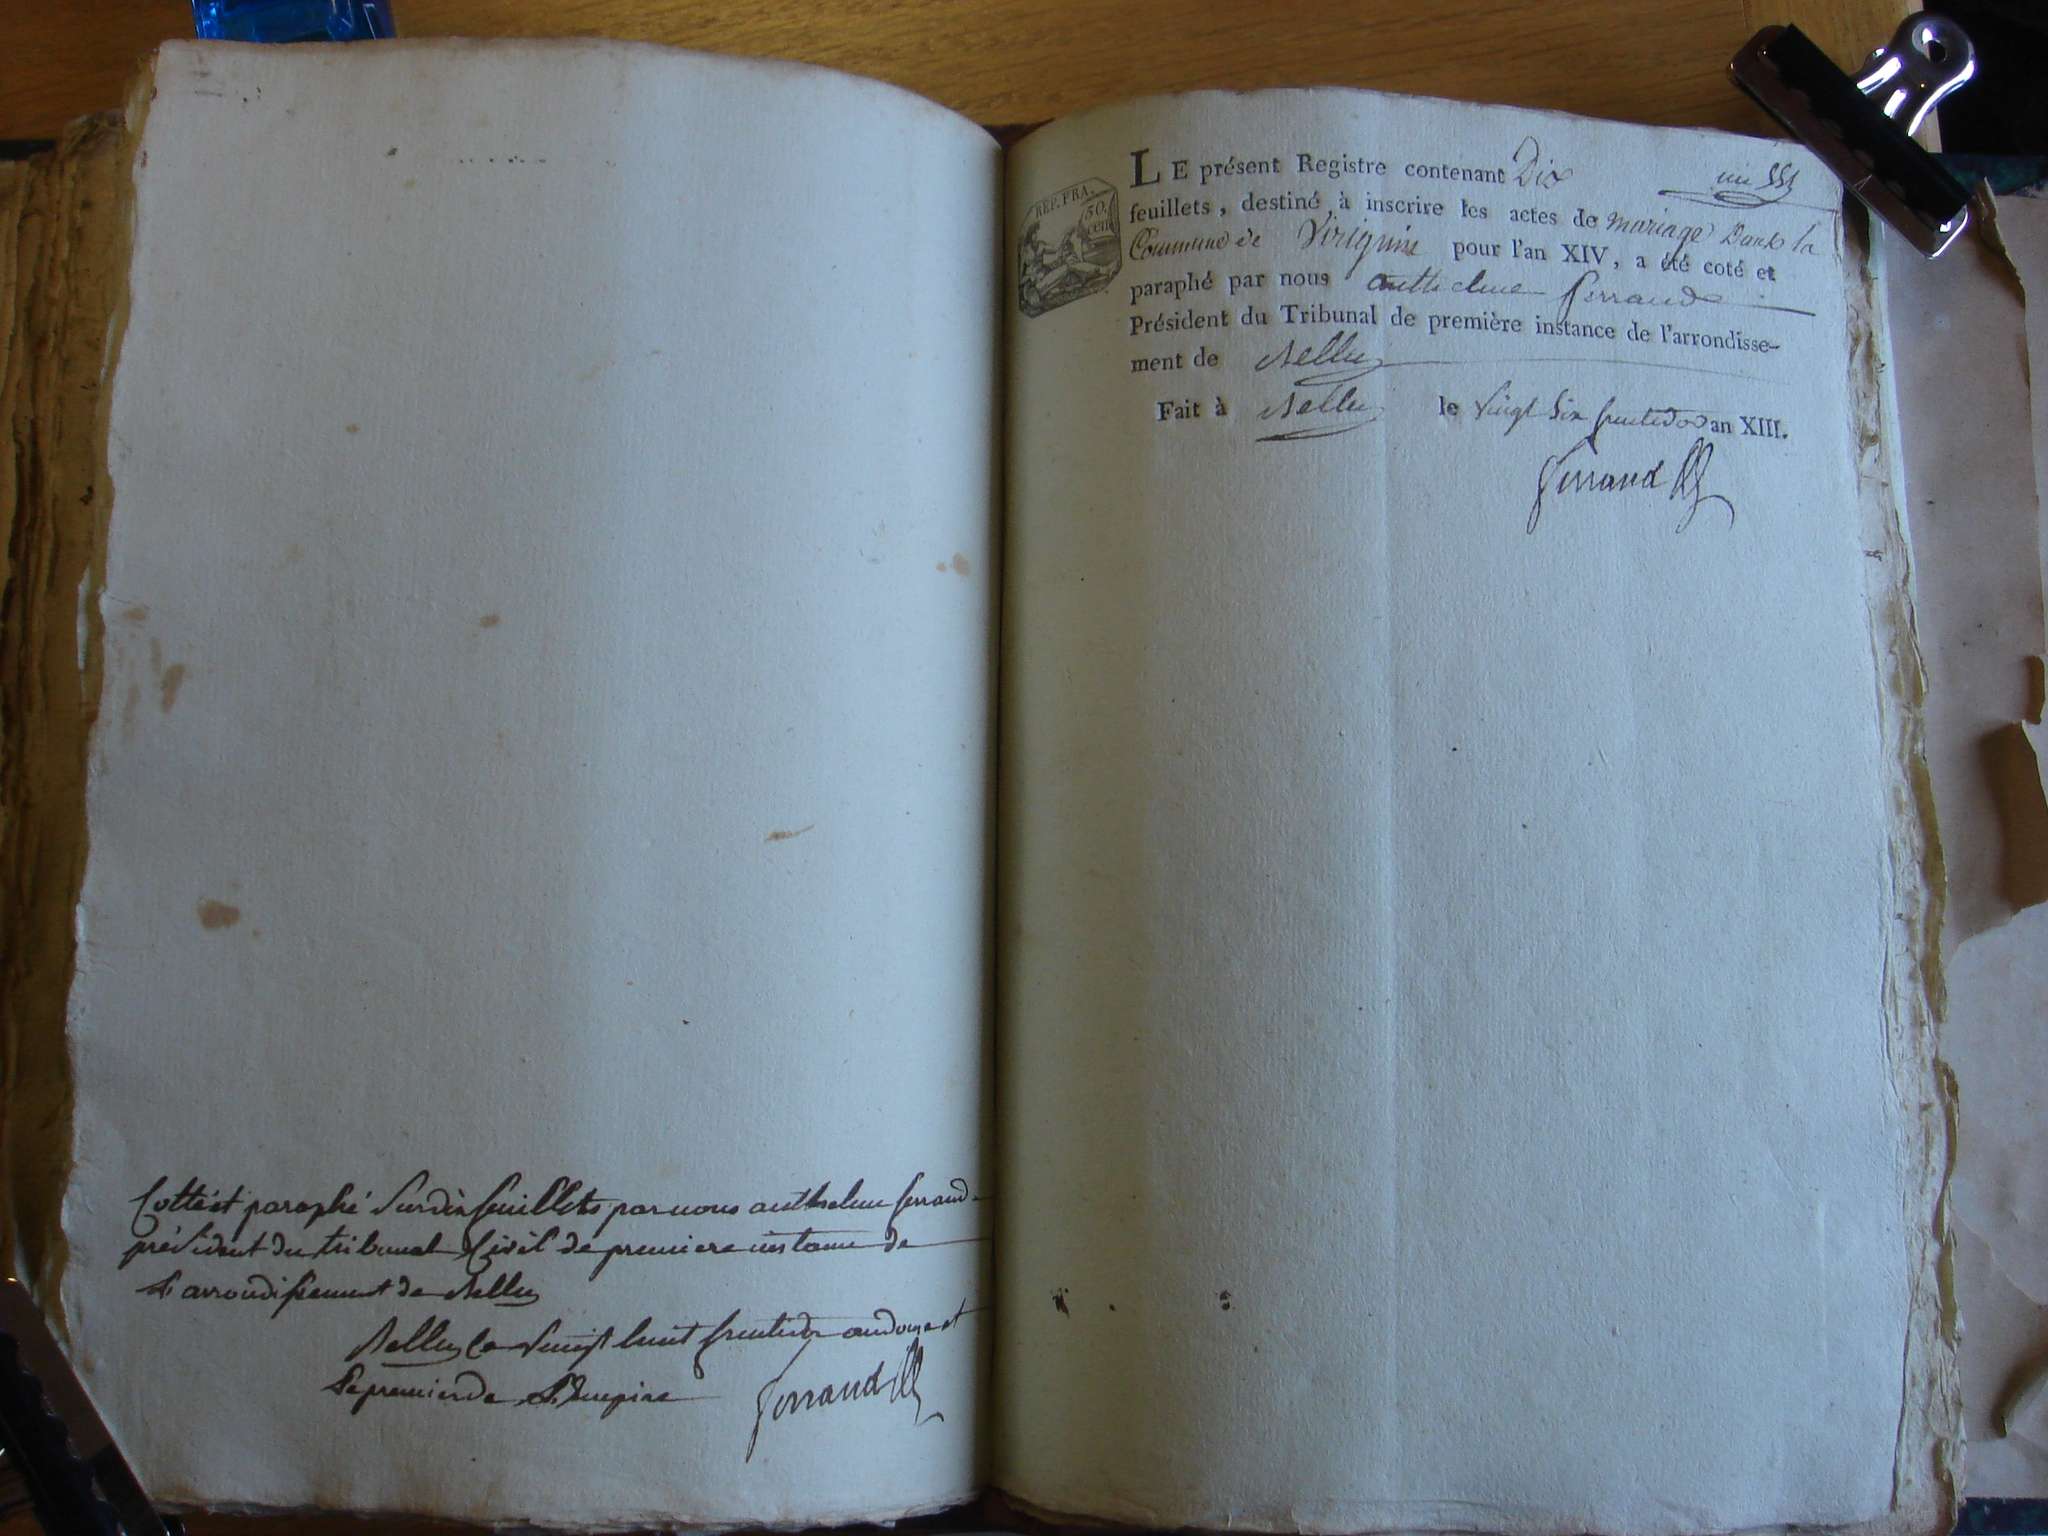 Cotté et paraphé Sur dix feuillets par nous anthelme ferrand
président du tribunal Civil de premiere instance de
L'arrondissement de Belley
Belley Le Vingt huit fructidor an douze et
Le premier de L'Empire
ferrand
REP. FRA.
50
cen
LE présent Registre contenant Dix
feuillets, destiné à inscrire les actes de mariage Dans la
Commune de Virignin pour l'an XIV, a été coté et
paraphé par nous anthelme ferrand
Président du Tribunal de première instance de l'arrondisse-
ment de Belley
Fait à Belley le Vingt Six fructidor an XIII.
ferrand